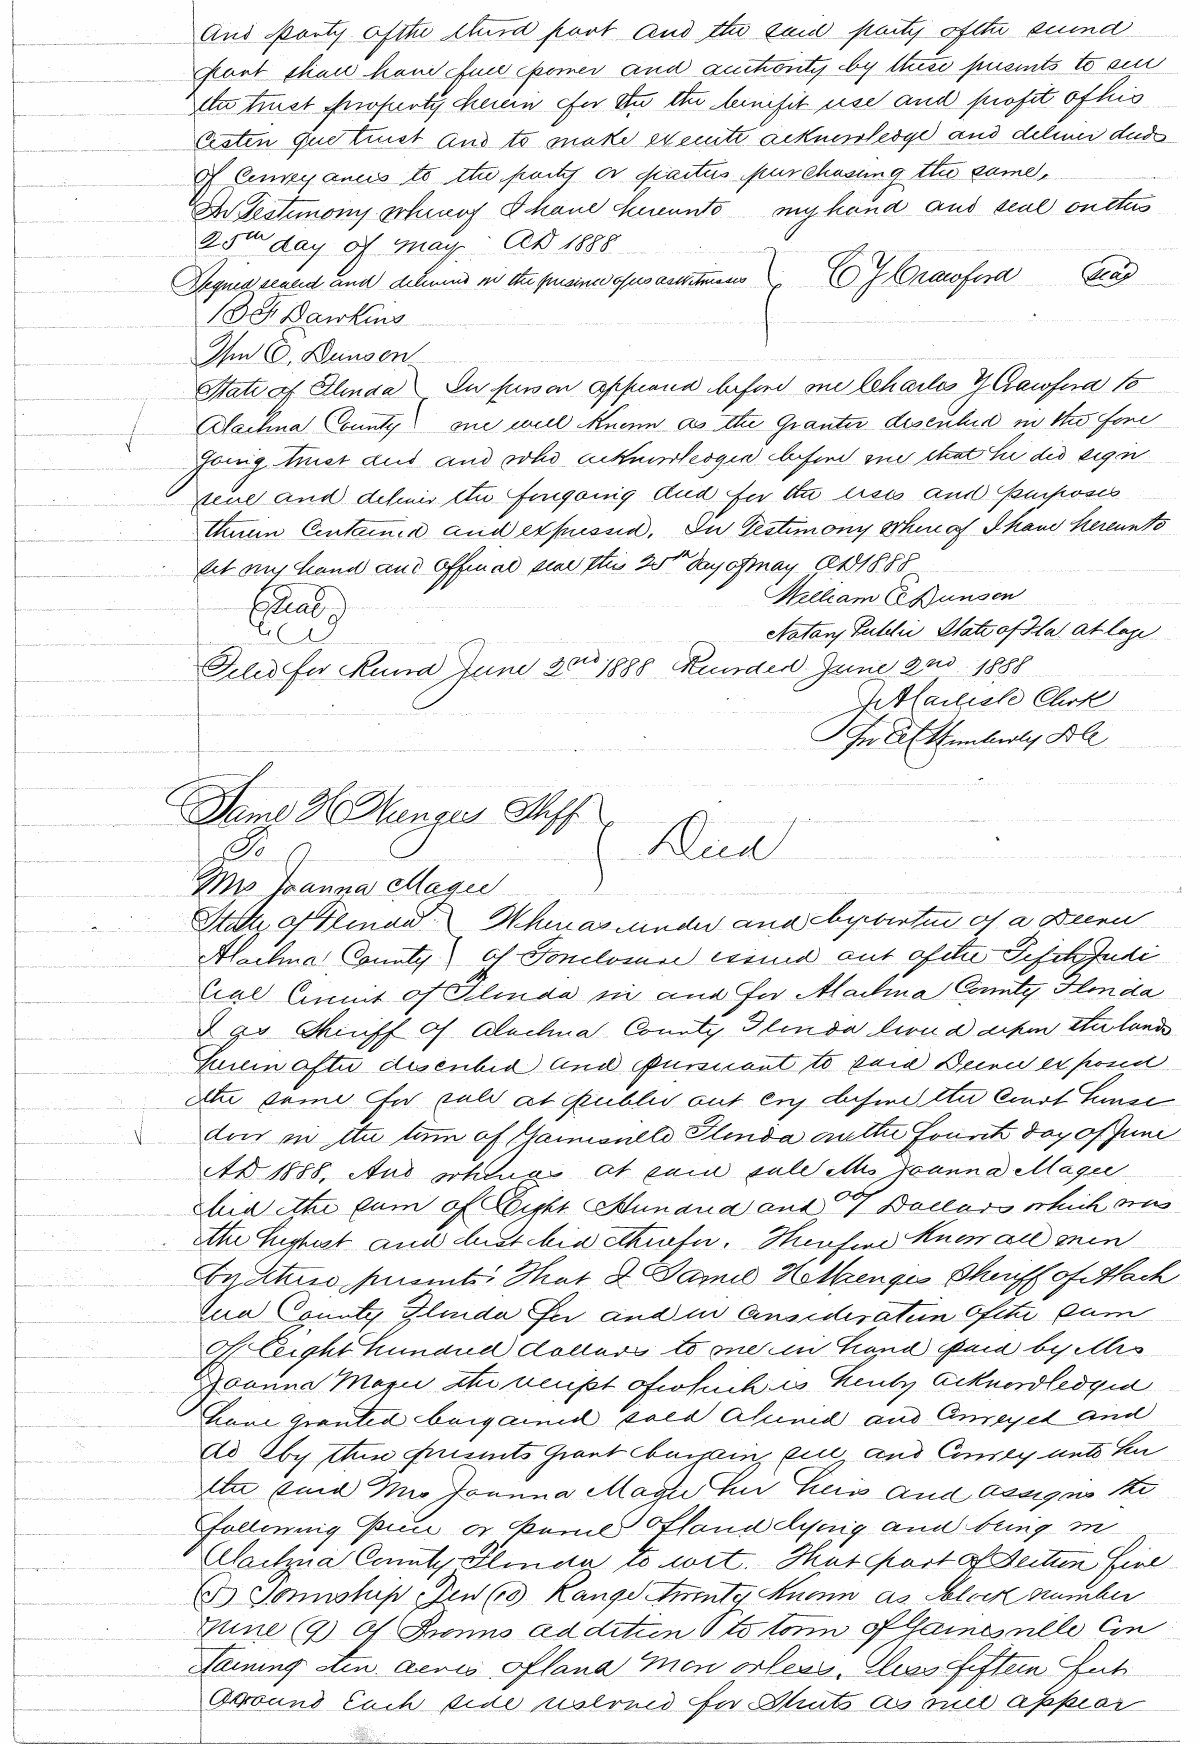 and party of the third part and the said party of the second
part shall have full power and authority by these presents to sell
the trust property herein for the the benifit use and profit of his
Cesten que trust and to make execute acknowledge and deliver deeds
of Conveyances to the party or parties purchasing the same,
In Testimony whereof I have hereunto my hand and seal on this
25th day of May AD 1888
Signed sealed and delivered in the presence of us as witnesses } C Y Crawford Seal
B F Dawkins
Wm E. Dunson
State of Florida } In person appeared before me Charles Y Crawford to
Alachua County } me well known as the Granter described in the fore
going trust deed and who acknowledged before me that he did sign
seal and deliver the foregoing deed for the uses and purposes
therein Contained and expressed. In Testimony whereof I have hereunto
set my hand and official seal this 25th day of May AD 1888
Seal William E Dunson
Notary Public State of Fla at large
Filed for Record June 2nd 1888 Recorded June 2nd 1888
Clerk
DC
Saml H Wienges Shff
To } Deed
Mrs Joanna Magee
State of Florida } Whereas under and by virtue of a Decree
Alachua County } of Foreclosure issued out of the Fifth Judi
cial Circuit of Florida in and for Alachua County Florida
I as Sheriff of Alachua County Florida levied upon the lands
herein after described and pursuant to said Decree exposed
the same for sale at public out cry before the Court house
door in the town of Gainesville Florida on the fourth day of June
AD 1888, And whereas at said sale Mrs Joanna Magee
bid the sum of Eight Hundred and 00/ Dollars which was
the highest and best bid therefor. Therefore Know all men
by these presents: That I Samel H Wienges Sheriff of Alach
ua County Florida for and in Consideration of the sum
of Eight hundred dollars to me in hand paid by Mrs
Joanna Magee the reciept of which is hereby acknowledged
have granted bargained sold aliened and Conveyed and
do by these presents grant bargain sell and Convey unto her
the said Mrs Joanna Magee her heirs and assigns the
following piece or parcel of land lying and being in
Alachua County Florida to wit. That part of Section five
(5) Township Ten (10) Range twenty known as block number
nine (9) of Browns addition to town of Gainesville Con
taining ten acres of land more or less, less fifteen feet
around Each side reserved for Streets as will appear